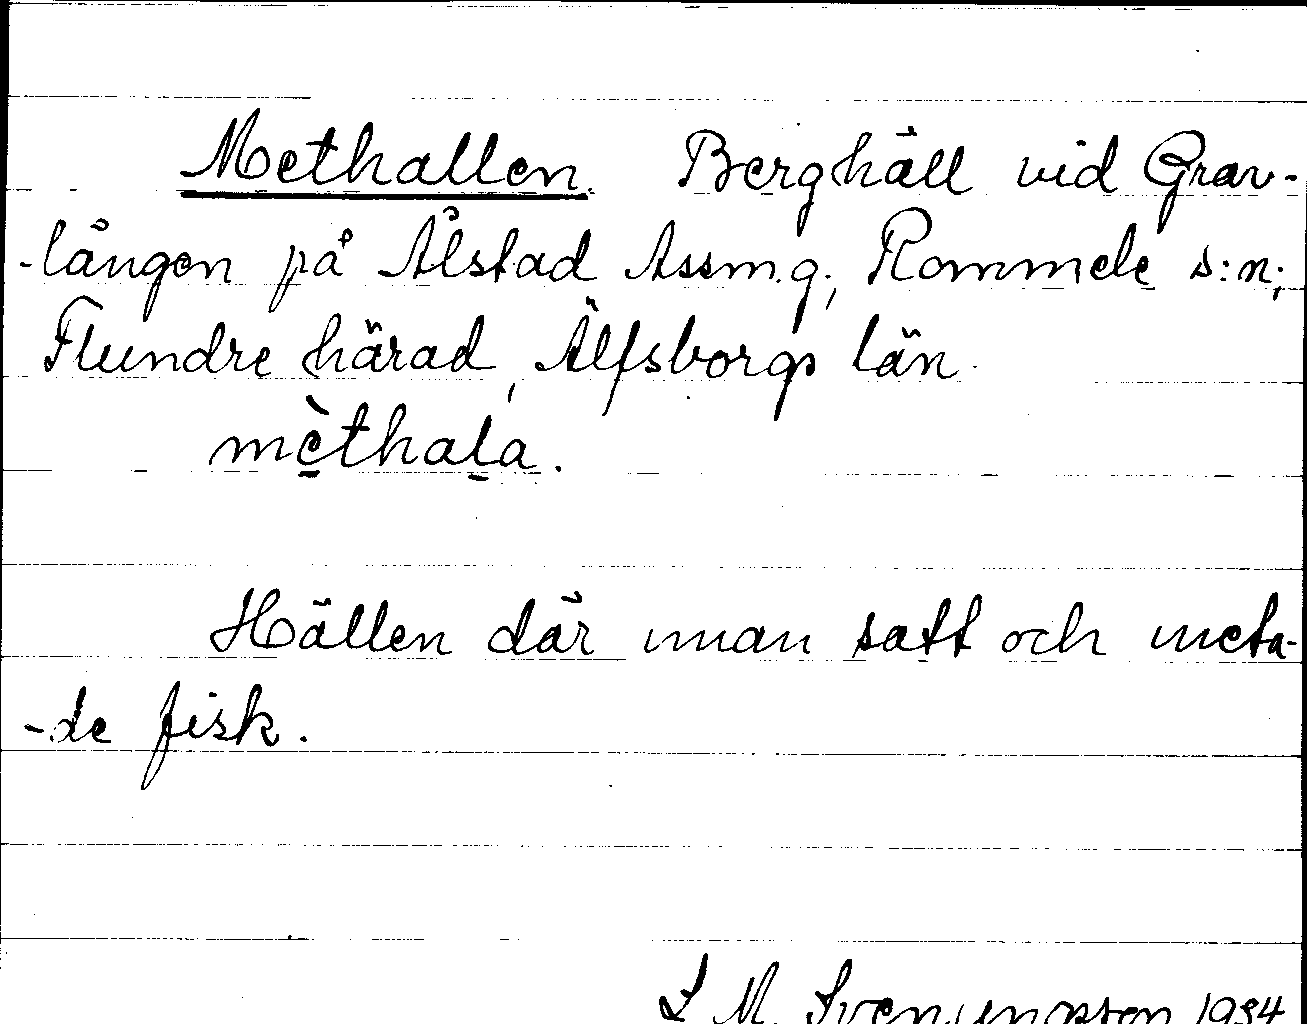 Methallen. Berghäll vid Grav-
-lången på Ålstad Assm.g; Rommele s:n;
Flundre härad, Älfsborgs län.
mèthala.
Hällen där man satt och meta-
-de fisk.
L M. 1934